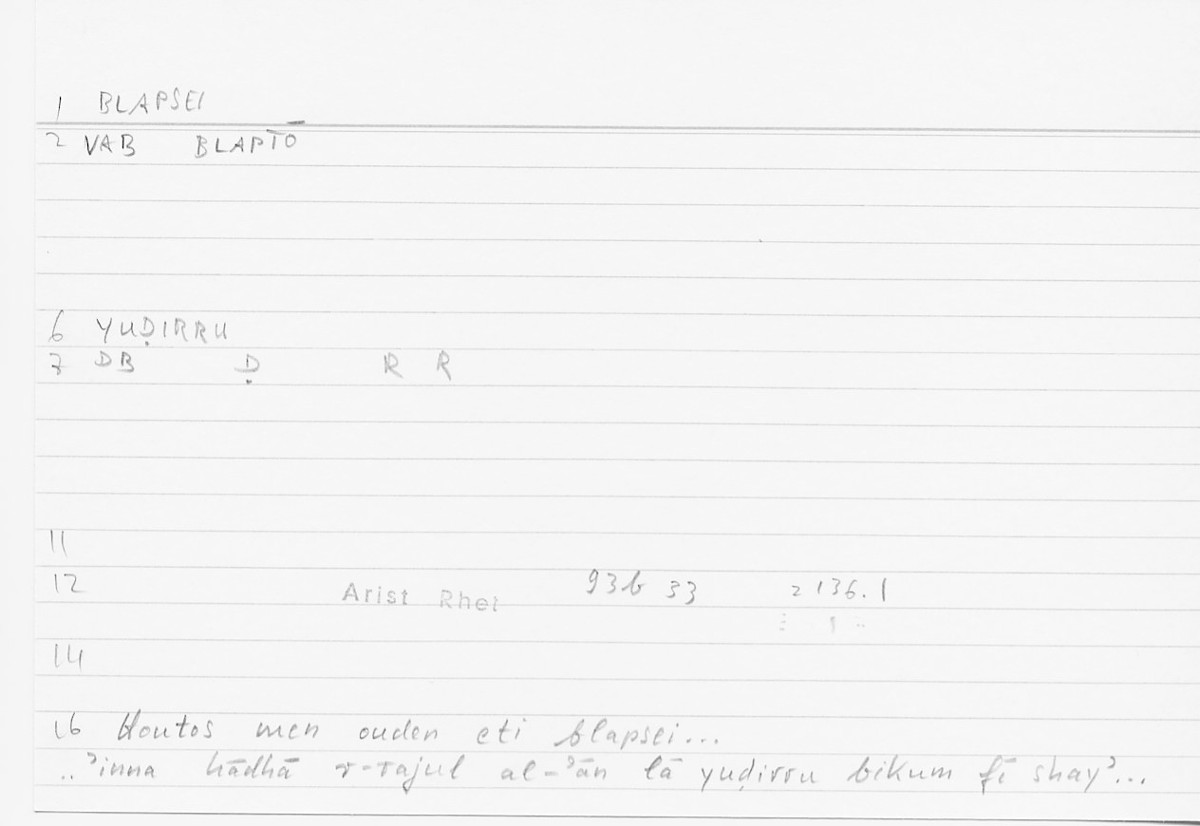 1 BLAPSEI
2 VAB BLAPTŌ
6 YUḌIRRU
7 DB Ḍ R R
11
12 Arist Rhet 93b 33 2136.1
14
16 Houtos men ouden eti blapsei...
..ʾinna hādhā r-rajul al-ʾān lā yuḍirru bikum fī shayʾ...